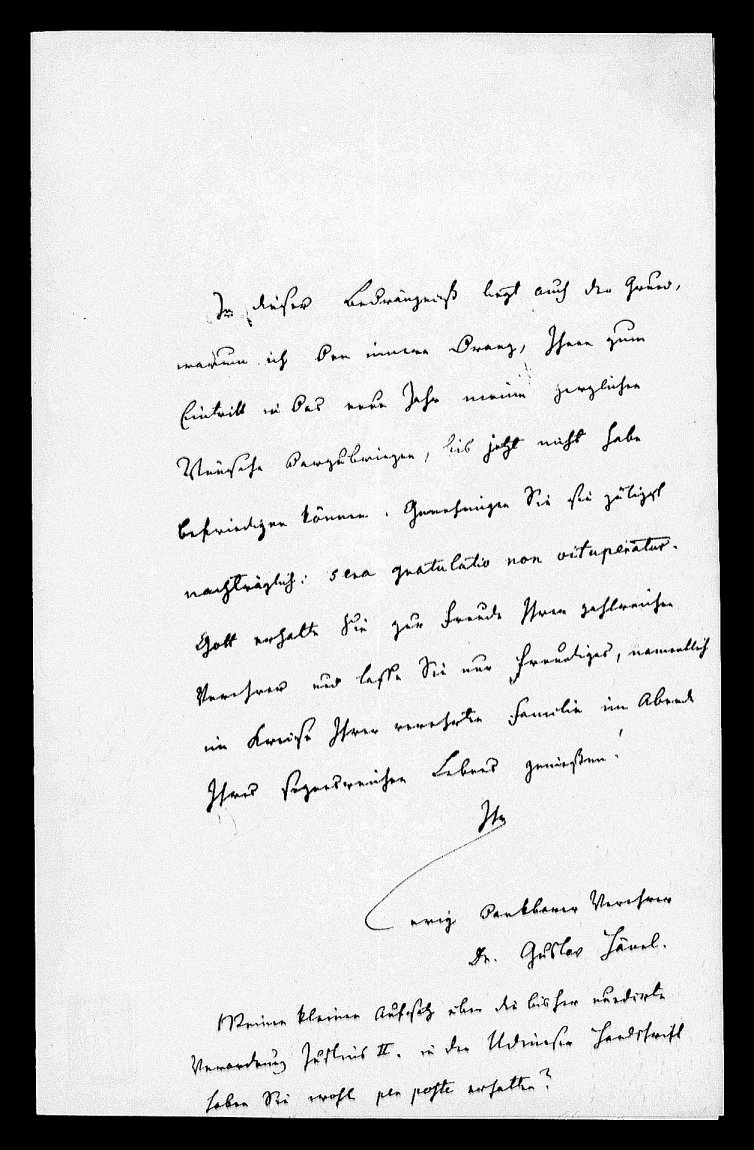 In dieser Bedrängniß liegt auch der Grund,
warum ich den innern Drang, Ihnen zum
Eintritt in das neue Jahr meine herzlichen
Wünsche darzubringen, bis jetzt nicht habe
befriedigen können. Genehmigen Sie sie gütigst
nachträglich: sera gratulatio non vituperatur.
Gott erhalte Sie zur Freude Ihrer zahlreichen
Verehrer und lasse Sie nur Freudiges, namentlich
im Kreise Ihrer verehrten Familie im Abende
Ihres segensreichen Lebens genießen!
Ihr
ewig dankbarer Verehrer
Dr. Gustav Hänel.
Meinen kleinen Aufsatz über die bisher unedirte
Verordnung Justins II. in der Udineser Handschrift
haben Sie wohl per poste erhalten?